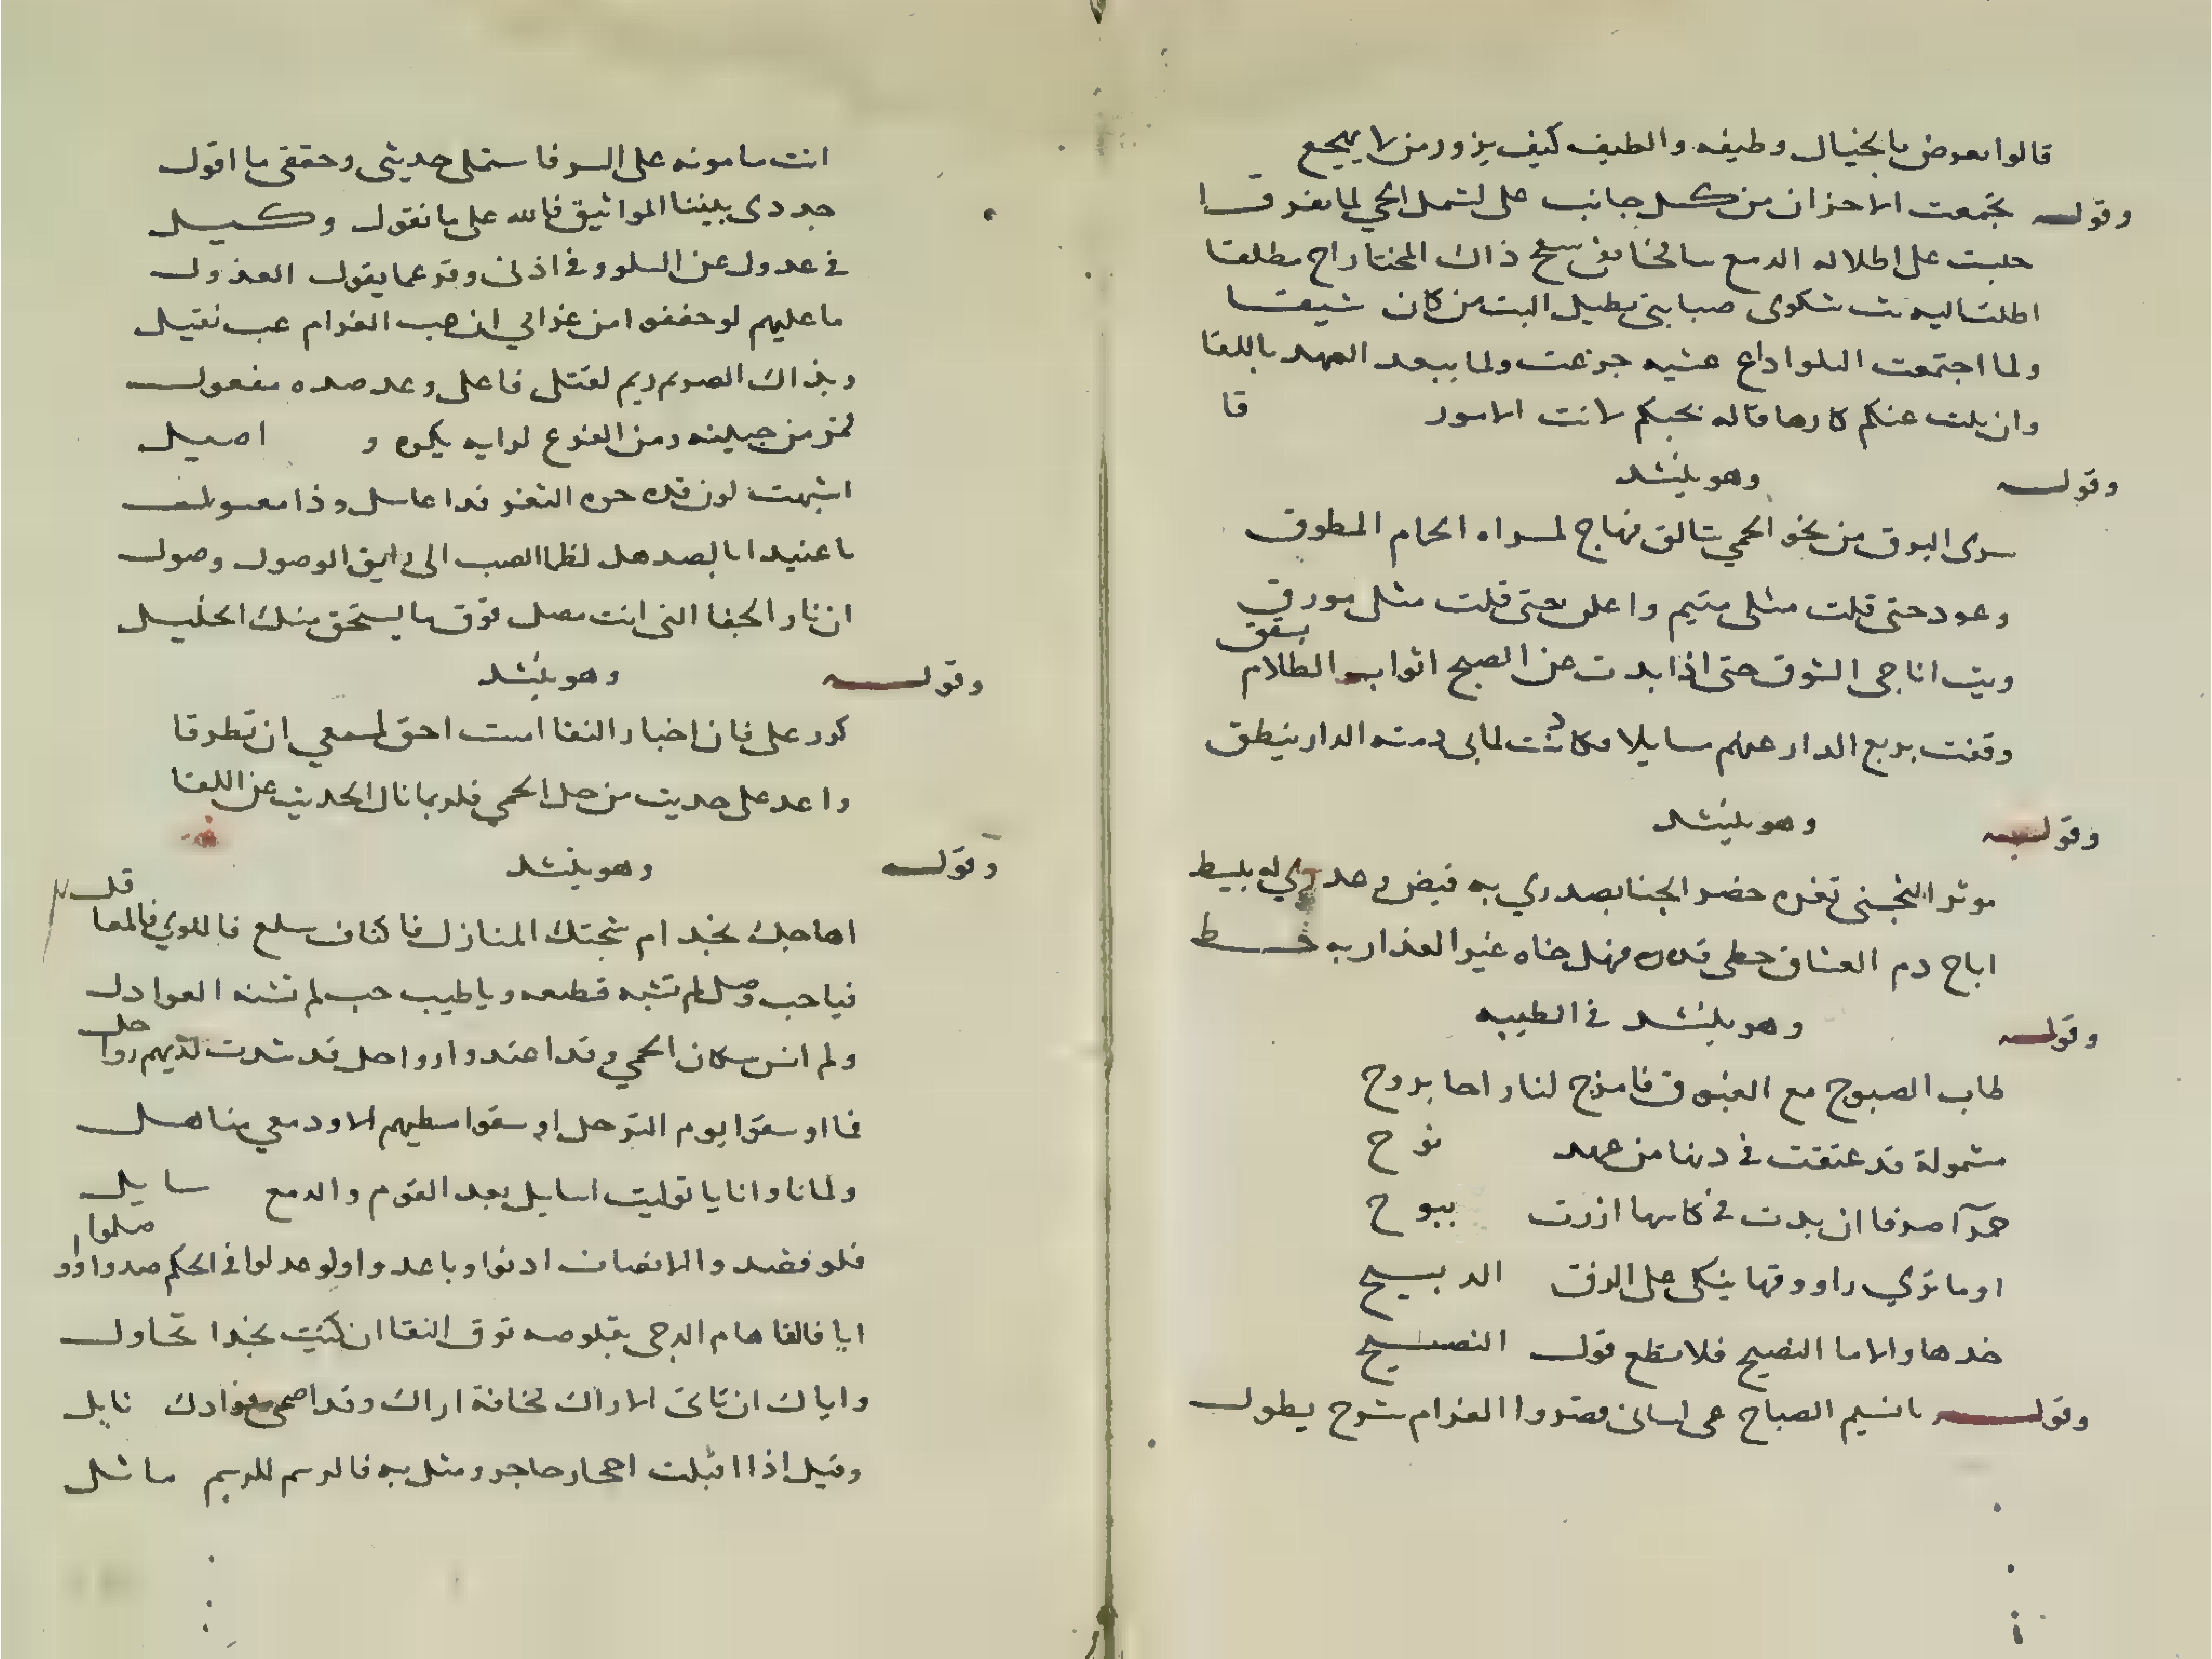 قالوا تعوض بالخيال وطيفه والطيف كيف يزور من لا يهجع
وقوله تجمعت الاحزان من كل جانب على لشمل الحي لما تفرقا
على اطلاله الدمع سافحا سفح ذاك المختار اح مطلقا
اطلت اليه بث شكوى صبابتى يطيل البث من كان شيقا
ولما اجتمعت اللوا داع عشيه جزعت ولما ببعد العهد باللقا
وان بلت عنكم كارها فاله بحبكم لانت الامور قا
وقوله وهو ينشد
سرى البرق من نحو الحمي تالق فهاج لمسراه الحمام المطوق
وعود حتى قلت مثلى متيم واعلن حتى قلت مثلى مورق
وبت اناجى الشوق حتى اذا بدت عن الصبح اثواب الظلام
وقفت بربع الدار عنهم سايلا وكادت لما بى دمنه الدار ينطق
وقوله وهو ينشد
موثر التجنى ثغره خضر الجنا بصدري به فيض له بسيط
اباح دم العشاق فهل خاه غير العذار به خط
وقوله وهو ينشد فى الطيبه
طاب الصبوح مع الغبوق فامزج لنا راحا بروح
مشمولة قد عتقت فى دنها من عهد نوح
حمرآ صرفا ان بدت فى كاسها ازرت ببوح
اوما تري راووقها يبكى على الزق الدبيح
خدها والاما النصيح فلا تطع قول النصيح
وقوله يا نسيم الصباح عى لسانى الغرام شرح يطول
انت مامونه على السر فاستملى حديثى وحققى ما اقول
جددى بيننا المواثيق فالله على ما نقول وكيل
فى عدول عن السلو وفى اذنى وقر عما يقول العذول
ما عليهم لو حففوا من غرامي ان صب الغرام عب ثقيل
وبذاك الصريم ريم لقتلى فاعل وعد صده مفعول
من جبينه ومن الفرع لرايه بكره و اصيل
اشبهت لون الثغر فذا عاسل وذا معسول
يا عنيدا بالصد هل لظما الصب الى ريق الوصول وصول
ان نار الجفا التى انت مصل فوق ما يستحق منك الخليل
وقوله وهو ينشد
كرر على فان اخبار النقا امست احق لسمعي ان تطرقا
واعد على حديث من حل الحمي فلربما ناب الحديث عن اللقا
وقوله وهو ينشد
اهاجك نجد ام شجتك المنازل فاكناف سلع فاللوي فالمعاقل
فياحب وصل لم تشبه قطيعه وياطيب حب لم تشنه العوادل
ولم انس سكان الحمي وقد اعتدوا رواحل قد شدت لديهم رواحل
فما اوسقوا يوم الترحل او سقوا مطيهم الا ودمعي مناهل
ولما ناوا نايا توليت اسايل بعد القوم والدمع سايل
فلو فقد والانصاف ادنوا وباعدوا ولو عدلوا فى الحكم صدوا وواصلوا
ايا فالقا هام الدجى بقلوصه توق النقا ان كنت نجدا تحاول
واياك ان تاتى الاراك مخافة اراك وقد اصمى فوادك نابل
وقيل اذا اقبلت احجار حاجر ومثل به فالرسم للريم ماثل